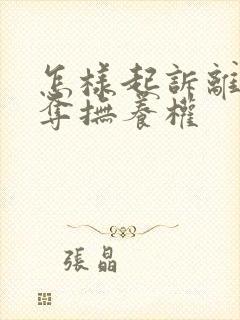 怎樣起訴離
奪撫養權
張晶